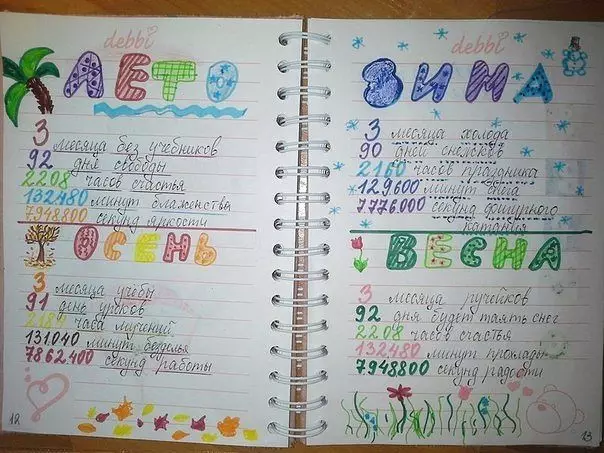 debbi
ЛЕТО
3 месяца без учебников
92 дня свободы
2208 часов счастья
132480 минут блаженства
7948800 секунд яркости
ОСЕНЬ
3 месяца учёбы
91 день уроков
2184 часа мучений
131.040 минут безделья
7862.400 секунд работы
12
debbi
ЗИМА
3 месяца холода
90 дней снежков
2160 часов праздника
129600 минут
7.776.000 секунд фигурного
катанья
ВЕСНА
3 месяца ручейков
92 дня будет таять снег
2208 часов счастья
132480 минут прохлады
7948800 секунд радости
13